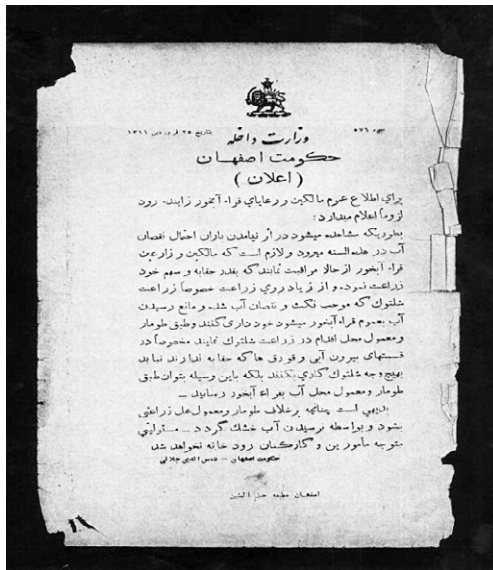 نمره ۵۷۶
بتاریخ ۲۵ فروردین ۱۳۱۱
وزارت داخله
حکومت اصفهان
( اعلان )
برای اطلاع عموم مالکین و رعایای قراء آبخور زاینده رود
لزوماً اعلام میدارد :
بطوریکه مشاهده میشود در اثر نیامدن باران احتمال نقصان
آب در هذه السنه میرود و لازم است که مالکین و زارعین
قراء آبخور از حالا مراقبت نمایند که بقدر حقابه و سهم خود
زراعت نموده و از زیاده روی زراعت خصوصاً زراعت
شلتوک که موجب نکث و نقصان آب شده و مانع رسیدن
آب بعموم قراء آبخور میشود خود داری کنند و طبق طومار
و معمول محل اقدام در زراعت شلتوک نمایند مخصوصاً در
قسمتهای بیرون آبی و قورق ها که حقابه ندارند نباید
بهیچوجه شلتوک کاری بکنند بلکه باین وسیله بتوان طبق
طومار و معمول محل آب بقراء آبخور رسانید ـــ
بدیهی است چنانچه برخلاف طومار و معمول محل زراعتی
بشود و بواسطه نرسیدن آب خشک گردد ـــ مسئولیتی
متوجه مأمورین و کارکنان رود خانه نخواهد شد
حکومت اصفهان ـ شمس الدین جلالی
اصفهان مطبعه حبل المتین